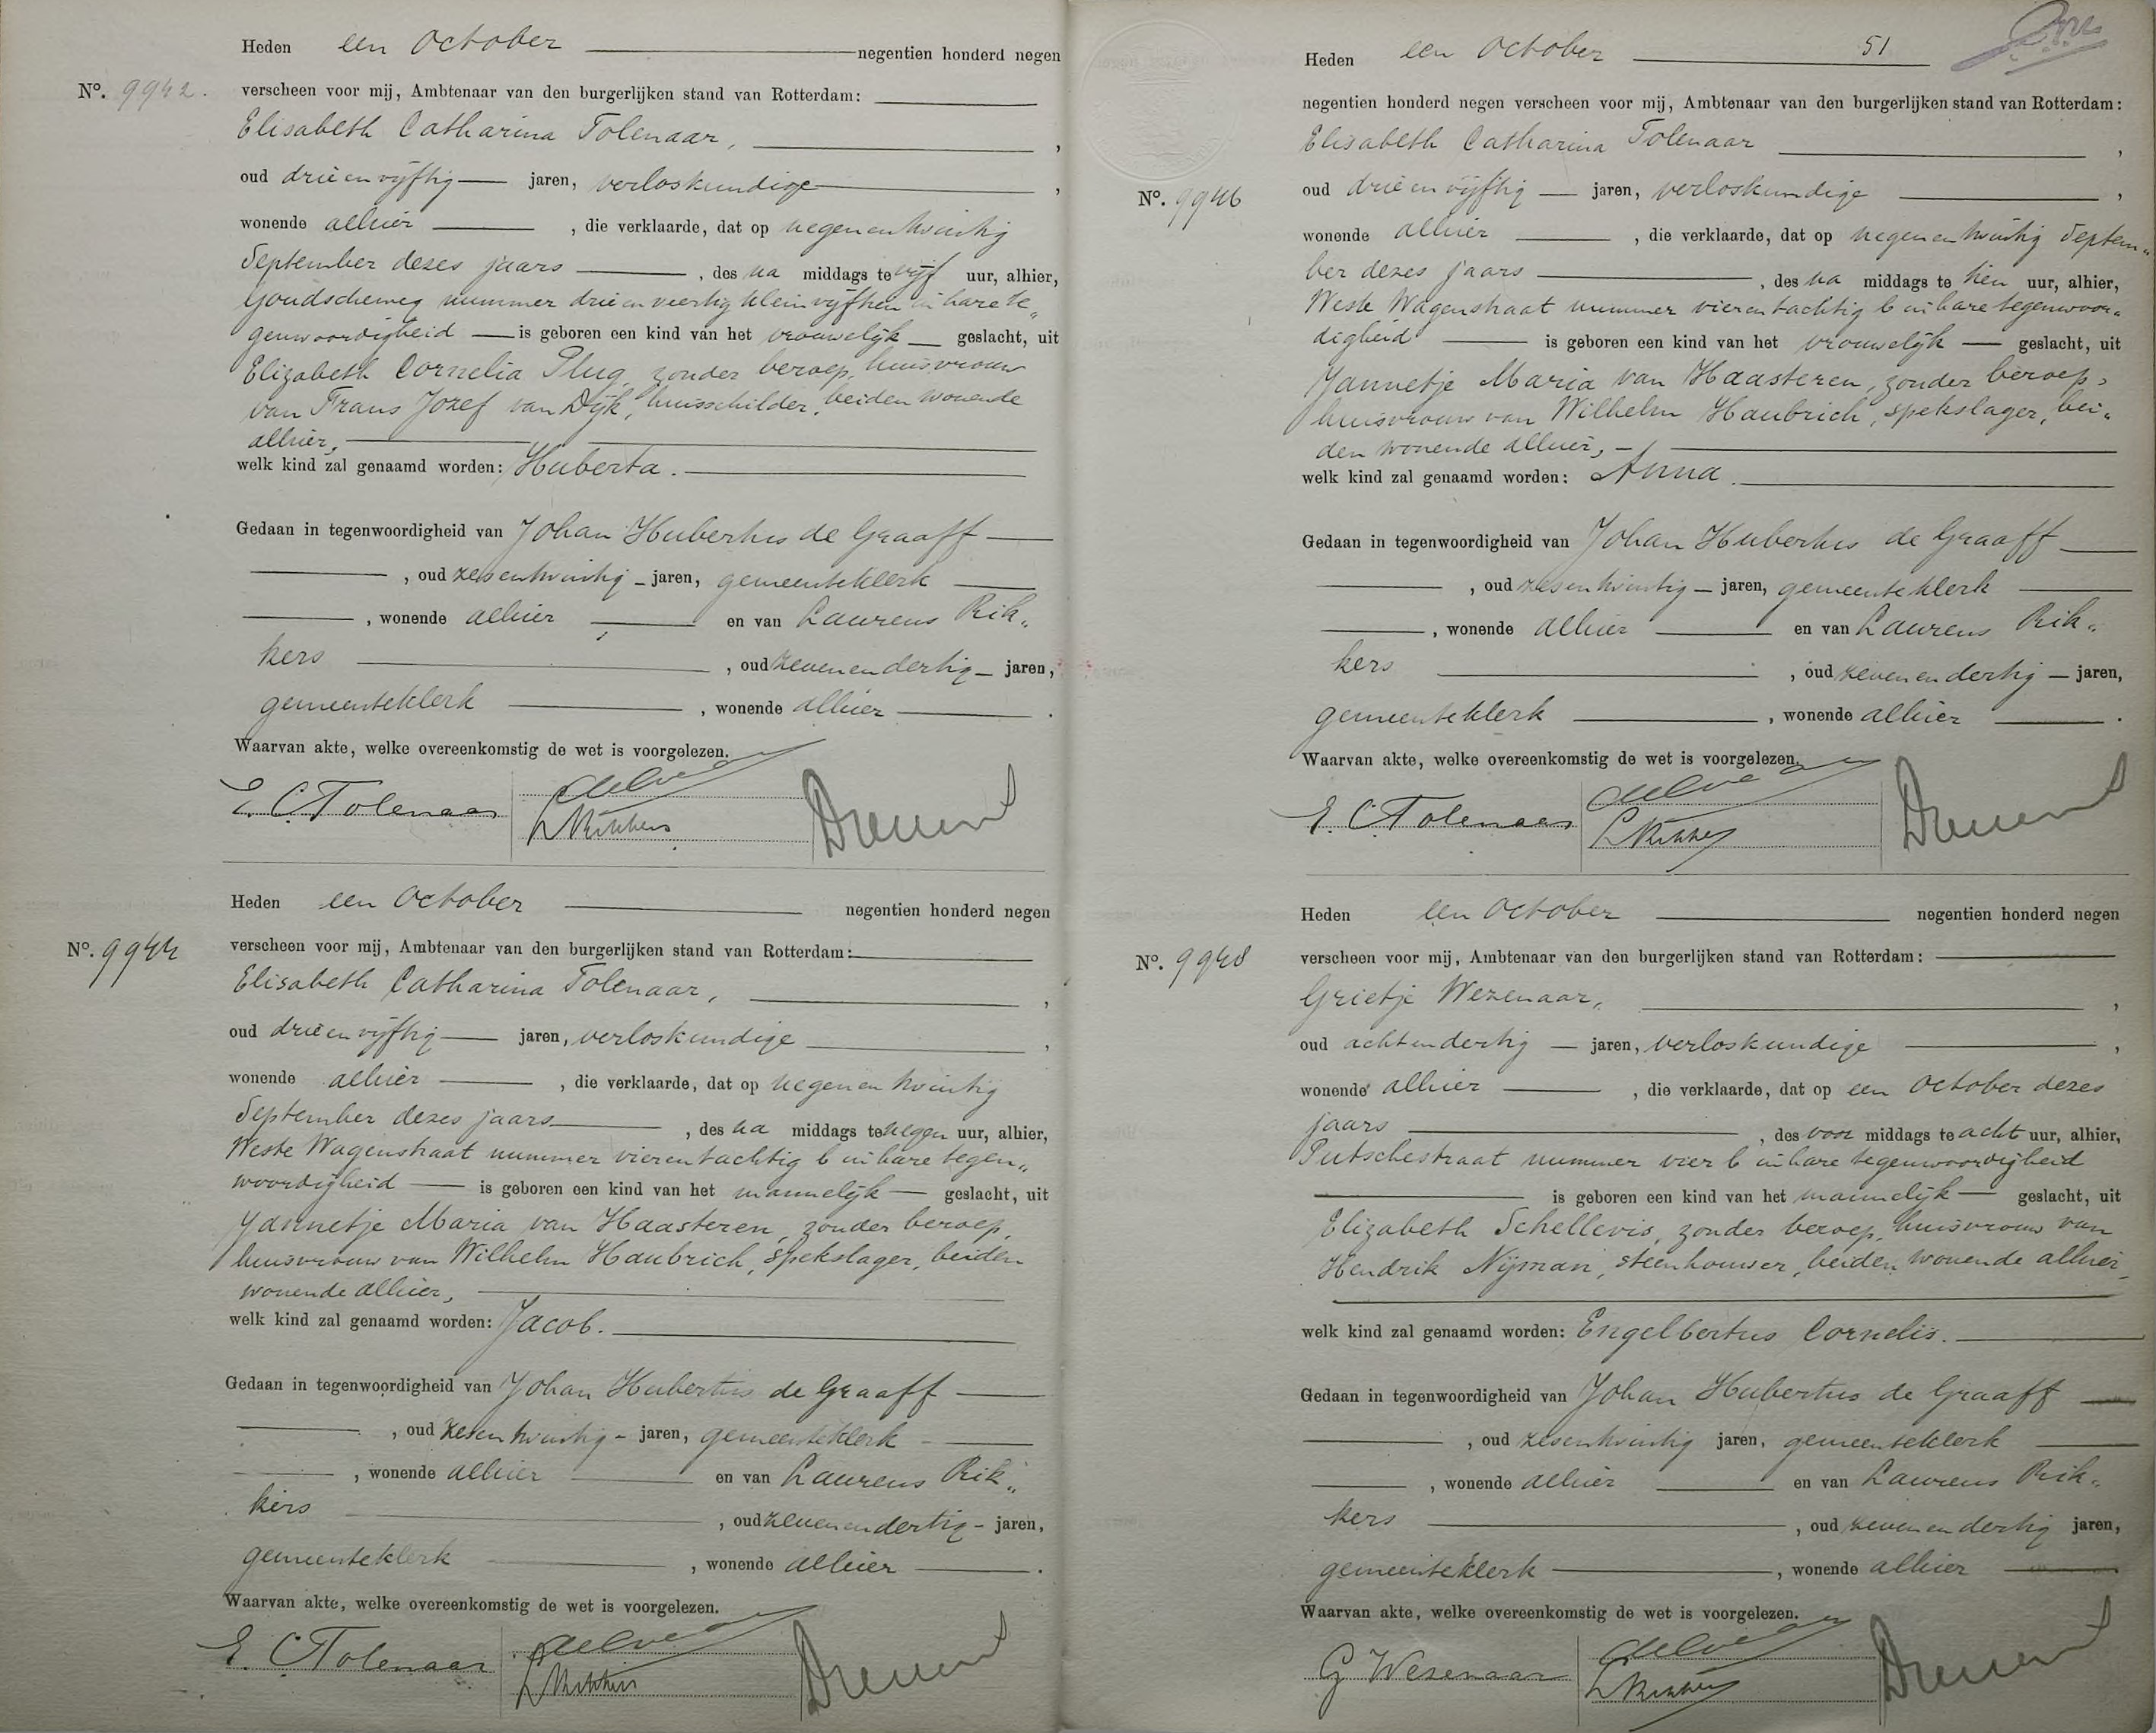 Heden een October negentien honderd negen
No. 9942.
verscheen voor mij, Ambtenaar van den burgerlijken stand van Rotterdam:
Elisabeth Catharina Tolenaar,
oud drie en vijftig jaren, verloskundige,
wonende alhier, die verklaarde, dat op negen en twintig
September dezes jaars, des na middags te vijf uur, alhier,
Goudscheweg nummer drie en veertig klein vijftien in hare te„
genwoordigheid is geboren een kind van het vrouwelijk geslacht, uit
Elizabeth Cornelia Plug, zonder beroep, huisvrouw
van Frans Jozef van Dijk, huisschilder, beiden wonende
alhier,
welk kind zal genaamd worden: Huberta.
Gedaan in tegenwoordigheid van Johan Hubertus de Graaff
, oud zes en twintig jaren, gemeenteklerk
, wonende alhier en van Laurens Rik„
kers, oud zeven en dertig jaren,
gemeenteklerk, wonende alhier.
Waarvan akte, welke overeenkomstig de wet is voorgelezen.
E. C. Tolenaar
L Rikkers
Heden een October negentien honderd negen
No. 9944
verscheen voor mij, Ambtenaar van den burgerlijken stand van Rotterdam:
Elisabeth Catharina Tolenaar,
oud drie en vijftig jaren, verloskundige,
wonende alhier, die verklaarde, dat op negen en twintig
September dezes jaars, des na middags te negen uur, alhier,
Weste Wagenstraat nummer vier en tachtig b in hare tegen„
woordigheid is geboren een kind van het mannelijk geslacht, uit
Jannetje Maria van Haasteren, zonder beroep,
huisvrouw van Wilhelm Haubrich, spekslager, beiden
wonende alhier,
welk kind zal genaamd worden: Jacob.
Gedaan in tegenwoordigheid van Johan Hubertus de Graaff
, oud zes en twintig jaren, gemeenteklerk
, wonende alhier en van Laurens Rik„
kers, oud zeven en dertig jaren,
gemeenteklerk, wonende alhier.
Waarvan akte, welke overeenkomstig de wet is voorgelezen.
E. C. Tolenaar
L Rikkers
51
Heden een October
negentien honderd negen verscheen voor mij, Ambtenaar van den burgerlijken stand van Rotterdam:
Elisabeth Catharina Tolenaar,
No. 9946
oud drie en vijftig jaren, verloskundige,
wonende alhier, die verklaarde, dat op negen en twintig Septem„
ber dezes jaars, des na middags te tien uur, alhier,
Weste Wagenstraat nummer vier en tachtig b in hare tegenwoor„
digheid is geboren een kind van het vrouwelijk geslacht, uit
Jannetje Maria van Haasteren, zonder beroep,
huisvrouw van Wilhelm Haubrich, spekslager, bei„
den wonende alhier,
welk kind zal genaamd worden: Anna.
Gedaan in tegenwoordigheid van Johan Hubertus de Graaff
, oud zes en twintig jaren, gemeenteklerk
, wonende alhier en van Laurens Rik„
kers, oud zeven en dertig jaren,
gemeenteklerk, wonende alhier.
Waarvan akte, welke overeenkomstig de wet is voorgelezen.
E. C. Tolenaar
L Rikkers
Heden een October negentien honderd negen
No. 9948
verscheen voor mij, Ambtenaar van den burgerlijken stand van Rotterdam:
Grietje Wezenaar,
oud acht en dertig jaren, verloskundige,
wonende alhier, die verklaarde, dat op een October dezes
jaars, des voor middags te acht uur, alhier,
Putschestraat nummer vier b in hare tegenwoordigheid
is geboren een kind van het mannelijk geslacht, uit
Elizabeth Schellevis, zonder beroep, huisvrouw van
Hendrik Nijman, steenhouwer, beiden wonende alhier,
welk kind zal genaamd worden: Engelbertus Cornelis.
Gedaan in tegenwoordigheid van Johan Hubertus de Graaff
, oud zes en twintig jaren, gemeenteklerk
, wonende alhier en van Laurens Rik„
kers, oud zeven en dertig jaren,
gemeenteklerk, wonende alhier
Waarvan akte, welke overeenkomstig de wet is voorgelezen.
G Wezenaar
L Rikkers